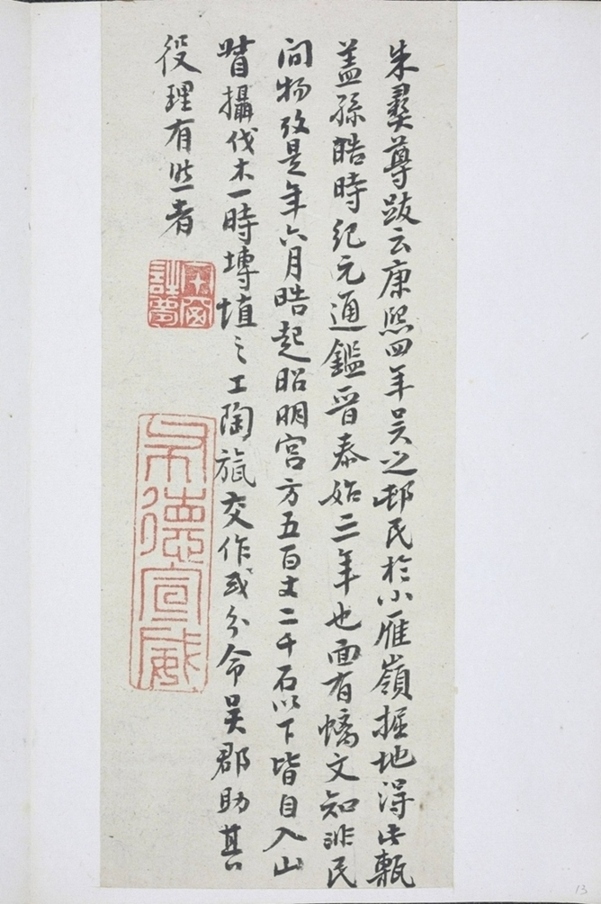 朱彝尊跋云康熙四年吴之邨民於小雁嶺掘地得此甎
蓋孫晧時紀元通鑑晉泰始三年也面有螭文知非民
间物攷是年六月晧起昭明宫方五百丈二千石以下皆自入山
督攝伐木一時塼埴之工陶旊交作或分命吴郡助其
役理有然者
布德宣威
13